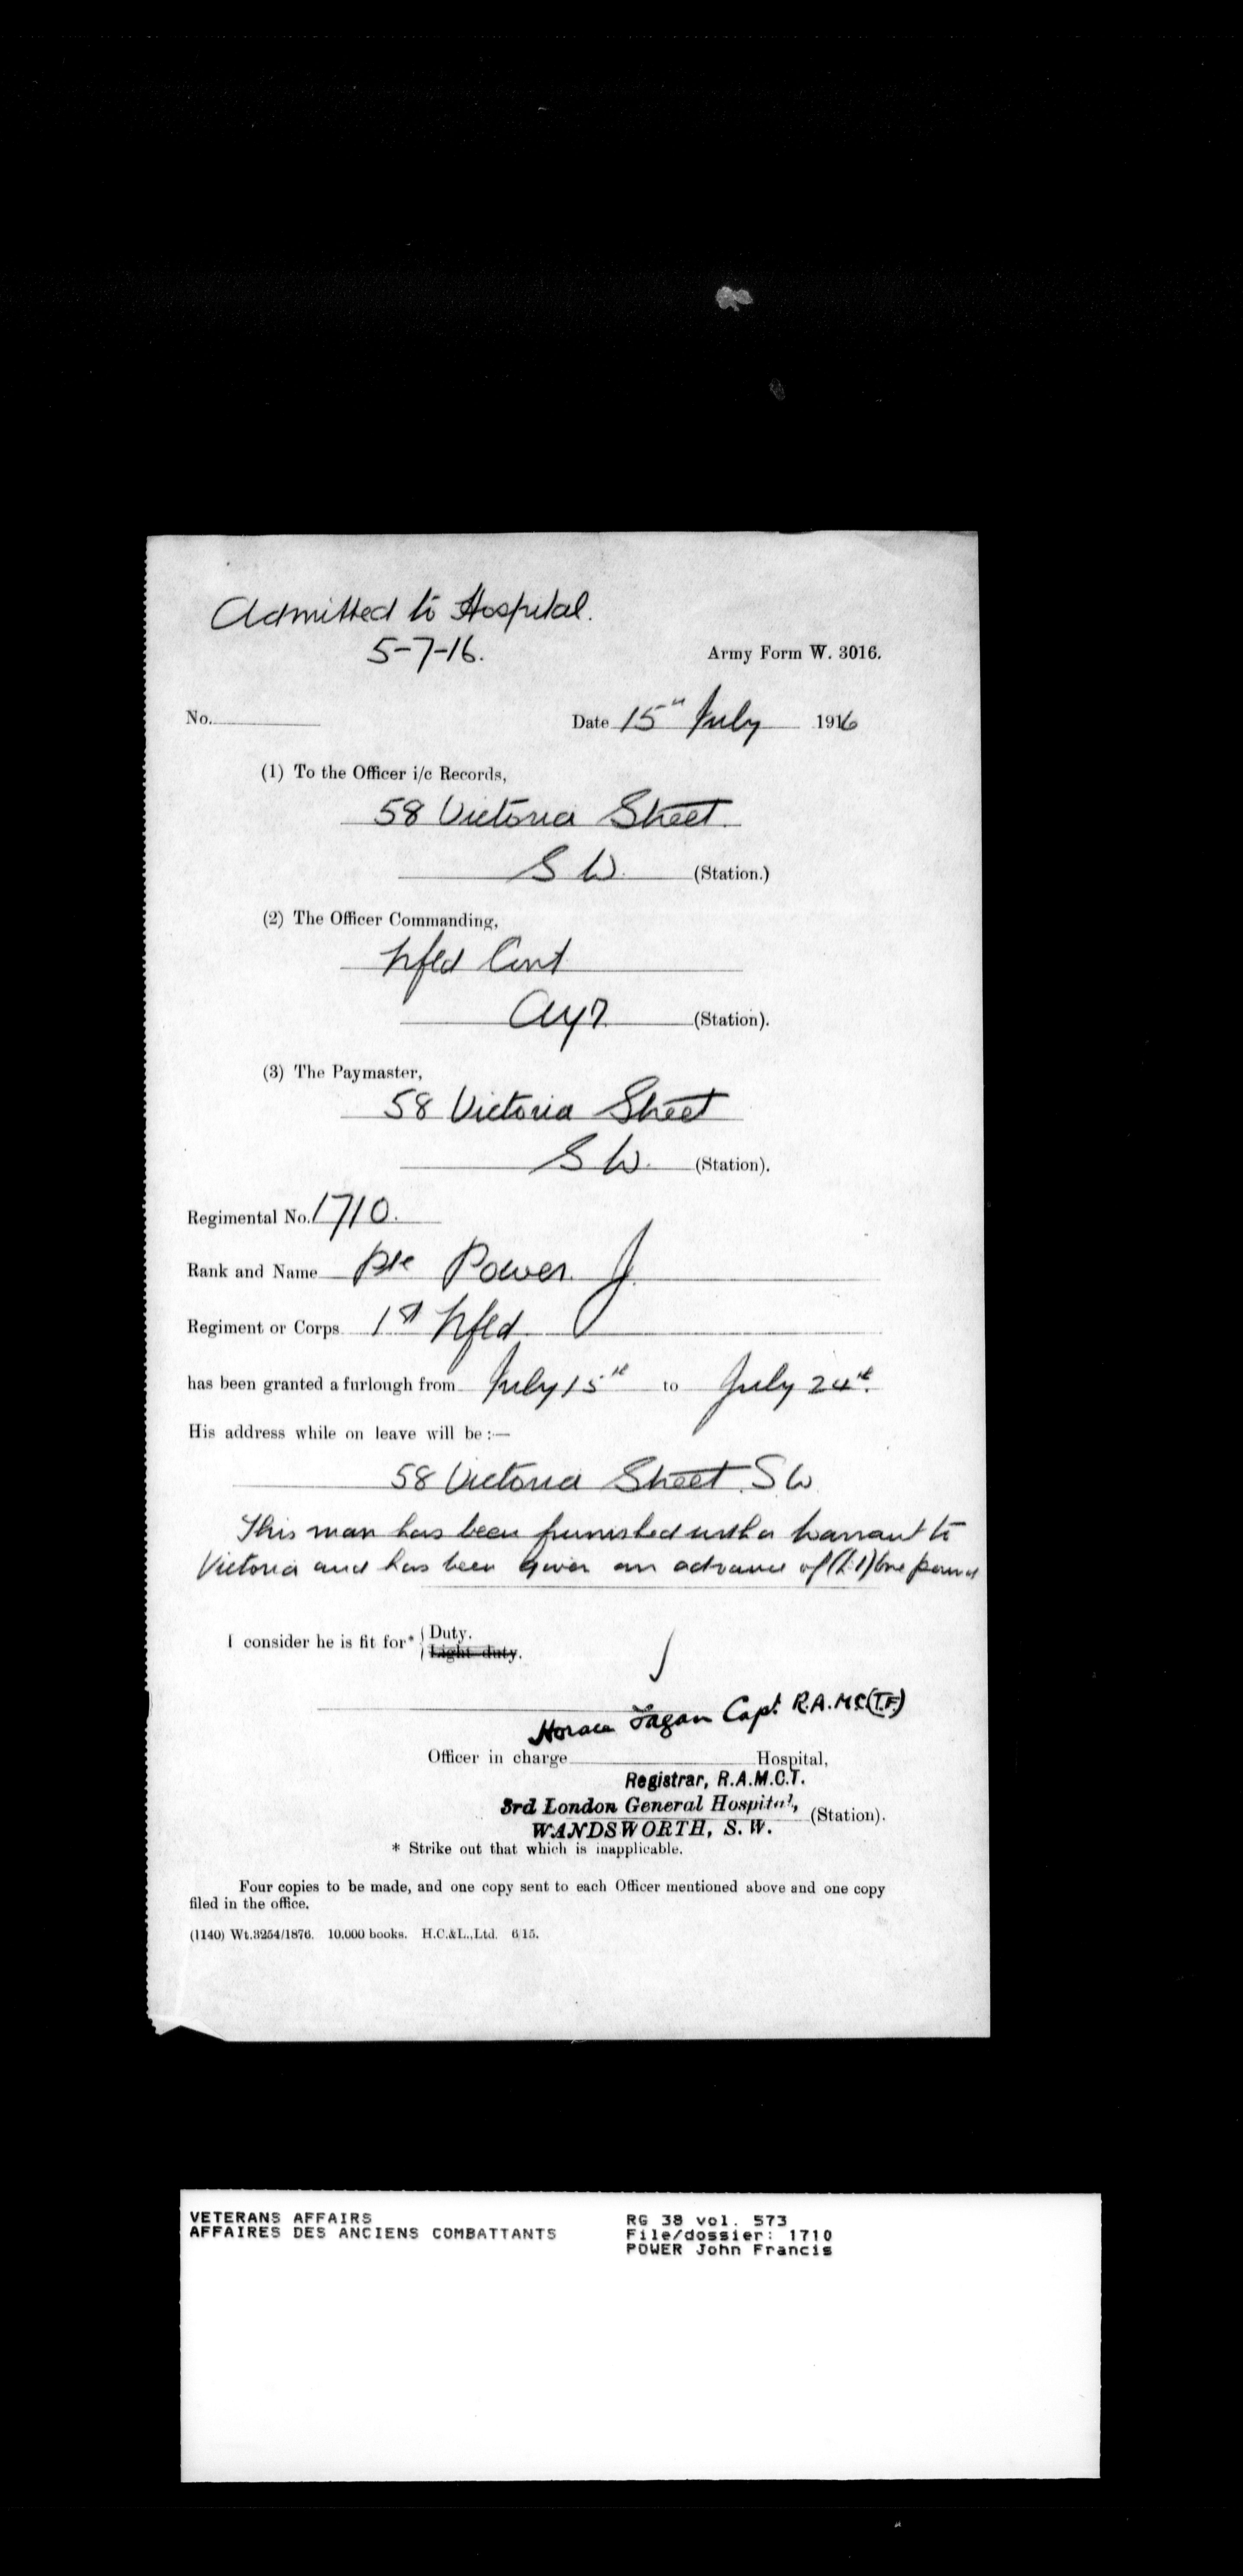 Admitted to Hospital.
5-7-16.
Army Form W. 3016.
No.
Date 15th July 1916
(1) To the Officer i/c Records,
58 Victoria Street.
S W. (Station.)
(2) The Officer Commanding,
Nfld Cont
Ayr. (Station).
(3) The Paymaster,
58 Victoria Street
S W. (Station).
Regimental No. 1710.
Rank and Name Pte Power. J.
Regiment or Corps 1st Nfld.
has been granted a furlough from July 15th to July 24th.
His address while on leave will be :—
58 Victoria Street. S W
This man has been furnished with a warrant to
Victoria and has been given an advance of (£1) One pound
I consider he is fit for* Duty.
Light duty.
Horace Fagan Capt. R.A.M.C. (T.F.)
Officer in charge Hospital,
Registrar, R.A.M.C.T.
3rd London General Hospital, (Station).
WANDSWORTH, S. W.
* Strike out that which is inapplicable.
Four copies to be made, and one copy sent to each Officer mentioned above and one copy
filed in the office.
(1140) Wt.3254/1876. 10,000 books. H.C.&L.,Ltd. 6/15.
VETERANS AFFAIRS
AFFAIRES DES ANCIENS COMBATTANTS
RG 38 vol. 573
File/dossier: 1710
POWER John Francis